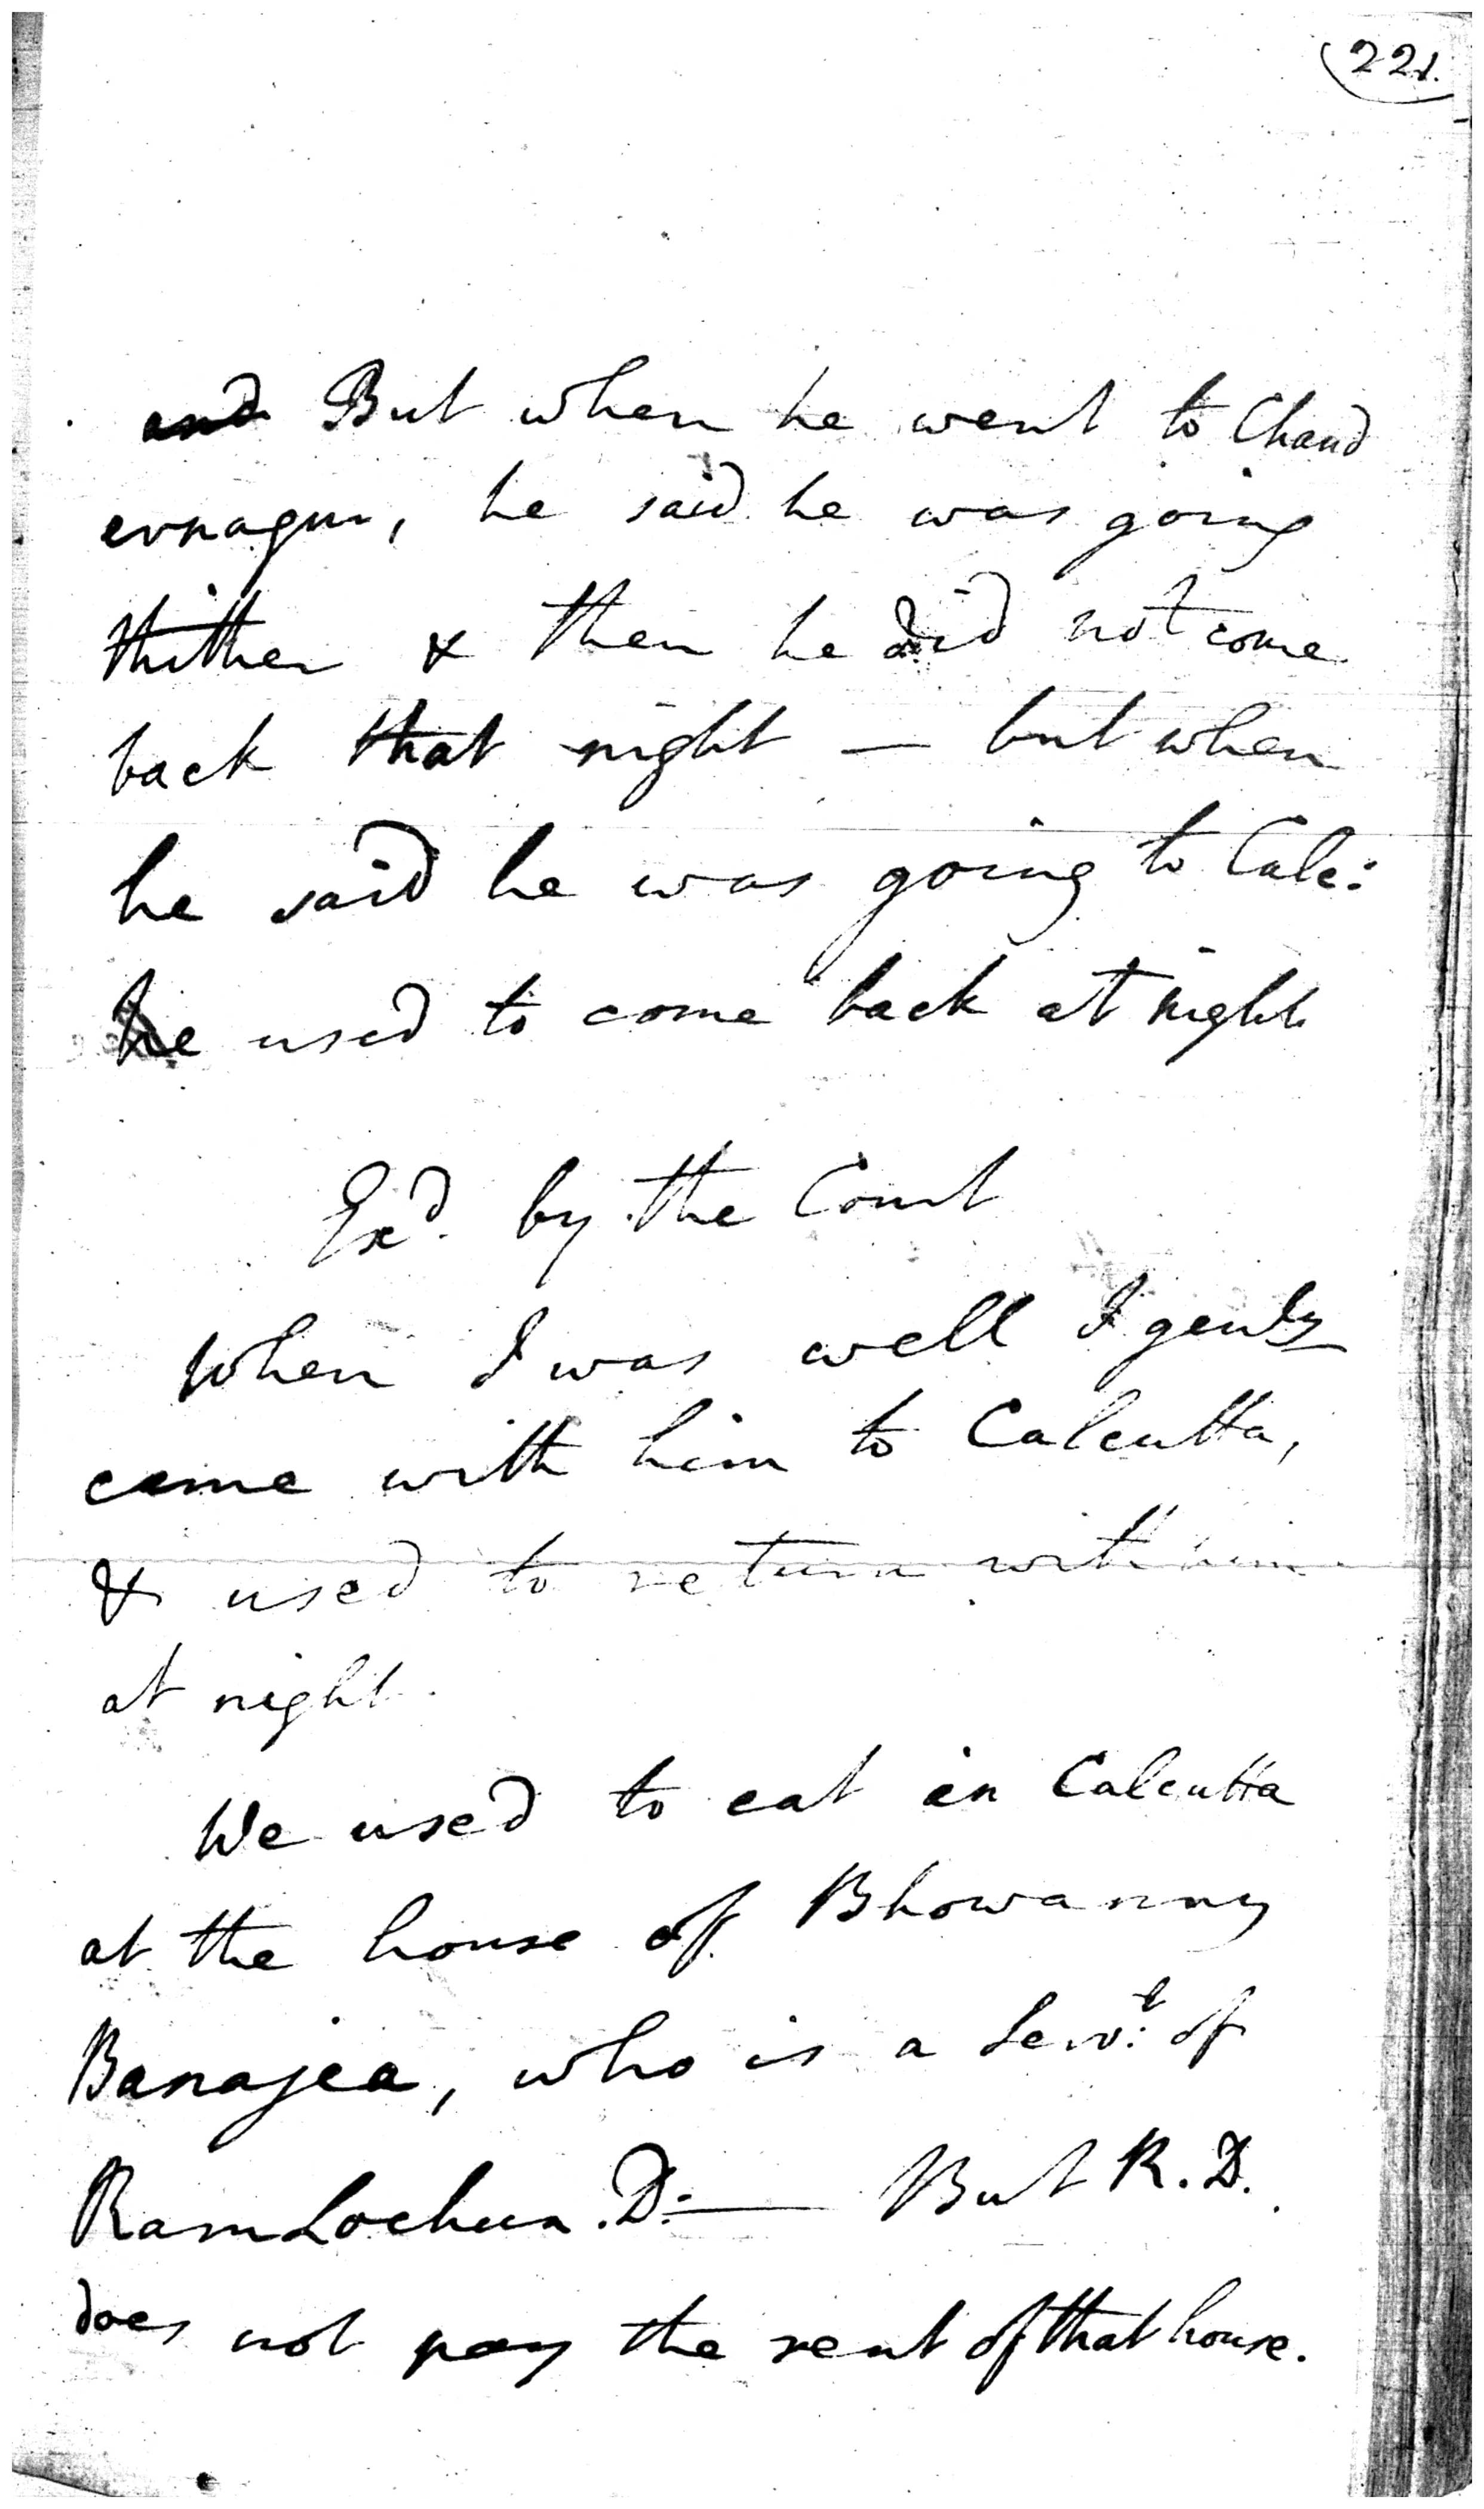 221.
and But when he went to Chand
ernagur, he said he was going
thither & then he did not come
back that night — but when
he said he was going to Calc:
he used to come back at night
Exd. by the Court
When I was well I genly
came with him to Calcutta,
& used to return with him
at night.
We used to eat in Calcutta
at the house of Bhowanny
Banajea, who is a Servt: of
RamLochun. D:— But R. D.
does not pay the rent of that house.